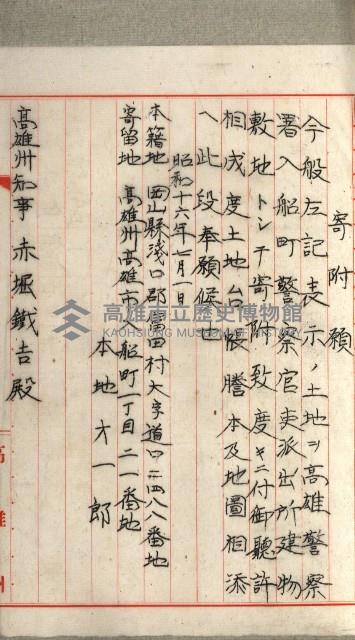 寄附願
今般左記表示ノ土地ヲ高雄警察
署入船町警察官吏派出所建物
敷地トシテ寄附致度キニ付御聽許
相成度土地台帳謄本及地圖相添
ヘ此段奉願候也
昭和十六年七月一日
本籍地 岡山縣淺口郡富田村大字道口二四八八番地
寄留地 高雄州高雄市入船町一丁目二一番地
本地才一郎
高雄州知事 赤堀鐵吉殿
高雄州
高雄市立歷史博物館
KAOHSIUNG MUSEUM OF HISTORY